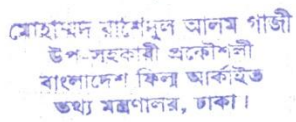 মোহাম্মদ রাশেদুল আলম গাজী
উপ-সহকারী প্রকৌশলী
বাংলাদেশ ফিল্ম আর্কাইভ
তথ্য মন্ত্রণালয়, ঢাকা।